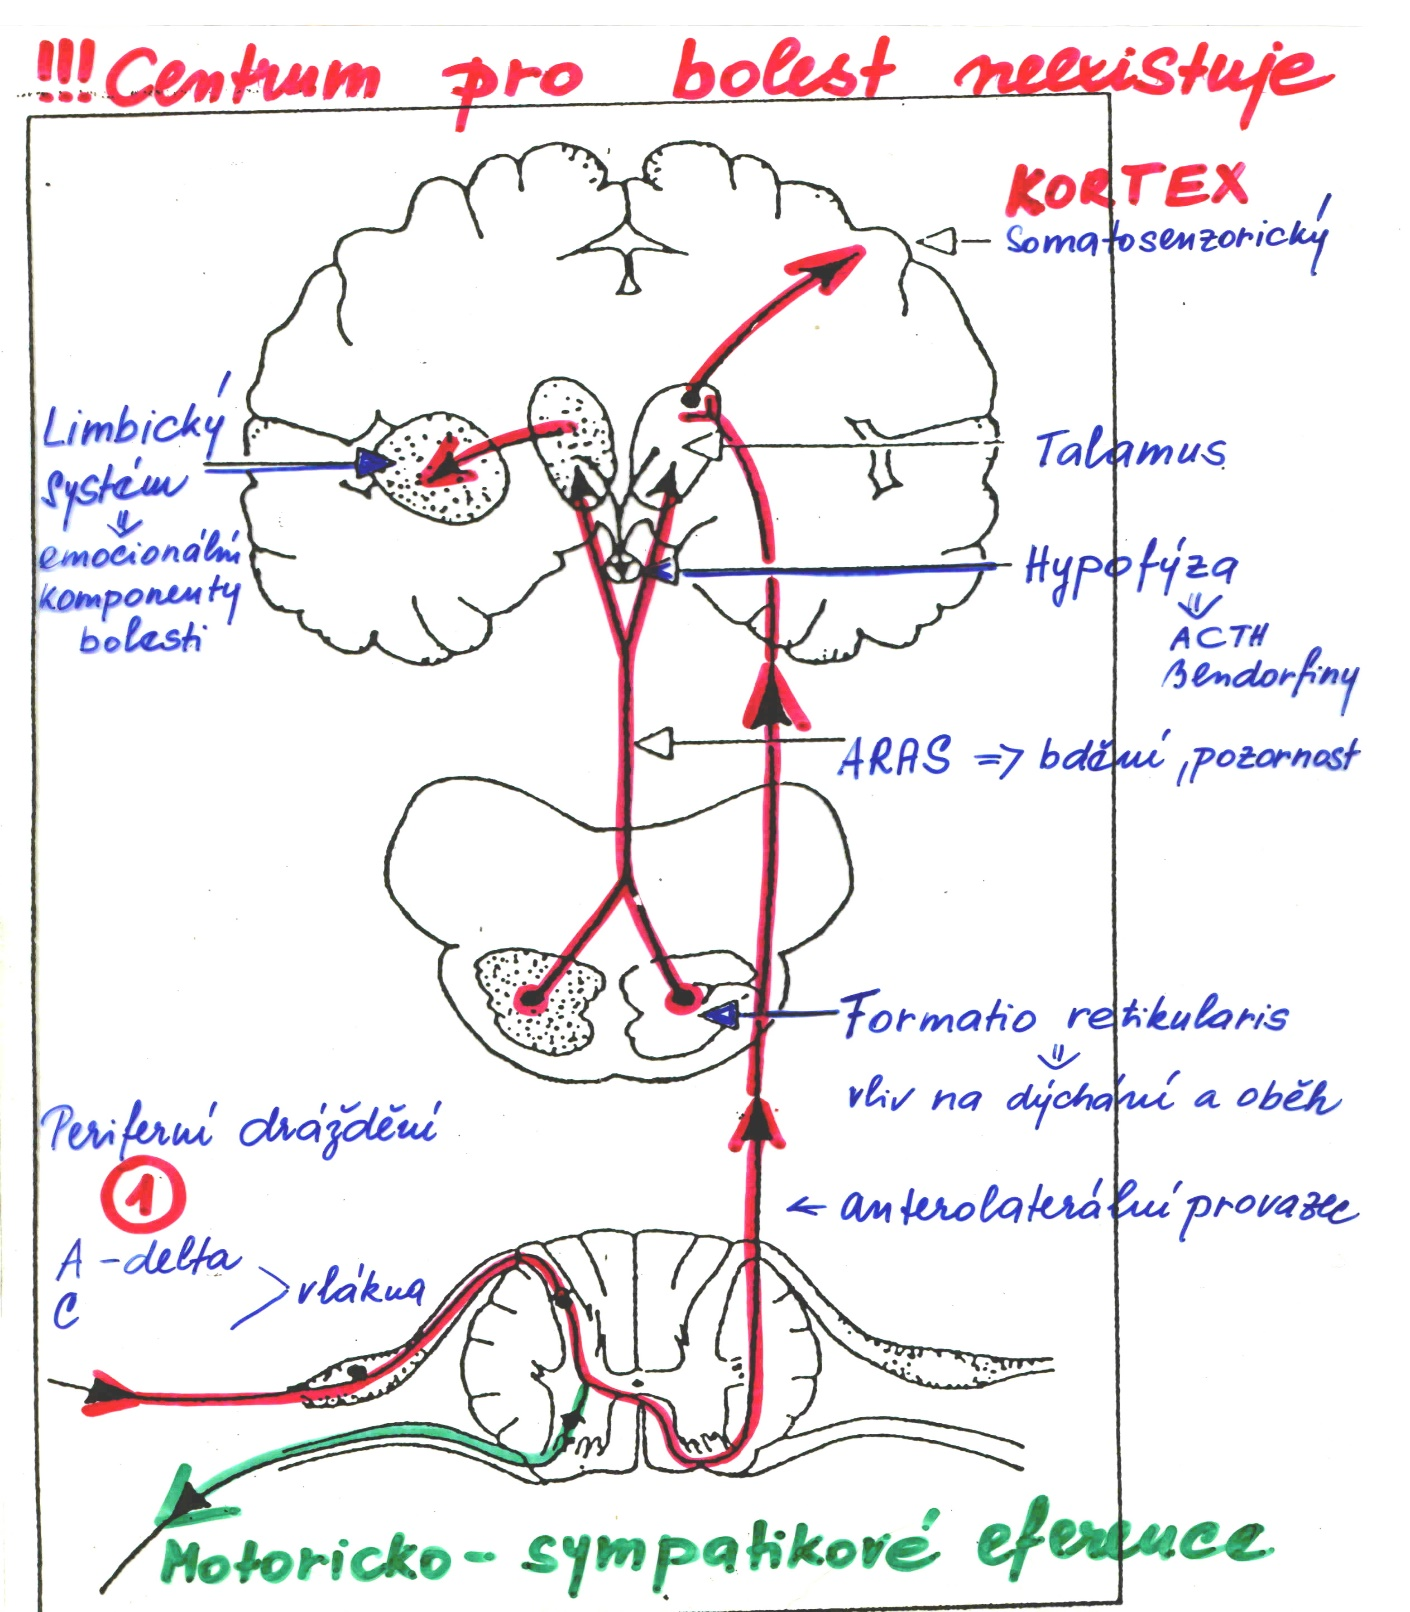 !!! Centrum pro bolest neexistuje
KORTEX
somatosenzorický
Limbický
systém
⇓
emocionální
komponenty
bolesti
Talamus
Hypofýza
⇓
ACTH
βendorfiny
ARAS => bdění, pozornost
Formatio retikularis
⇓
vliv na dýchání a oběh
Periferní dráždění
1
← anterolaterální provazec
A - delta
C
vlákna
Motoricko - sympatikové eference